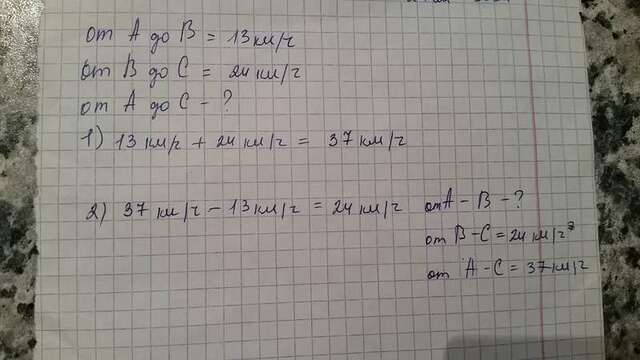 от А до В = 13 км/г
от В до С = 24 км/г
от А до С - ?
1) 13 км/г + 24 км/г = 37 км/г
2) 37 км/г - 13 км/г = 24 км/г
от А - В - ?
от В - С = 24 км/г
от А - С = 37 км/г